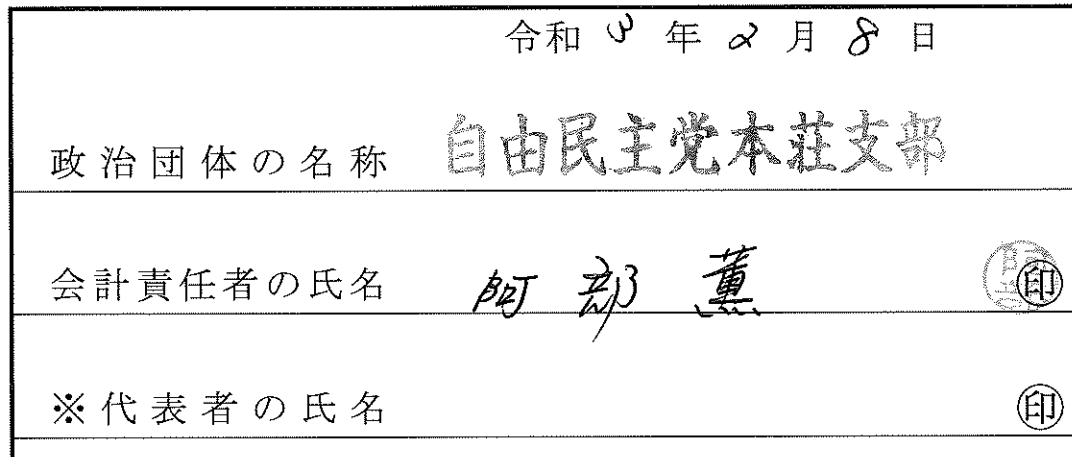 令和 3 年 2 月 8 日
政治団体の名称 自由民主党本荘支部
会計責任者の氏名 阿部 薫 阿部 ㊞
※代表者の氏名 ㊞